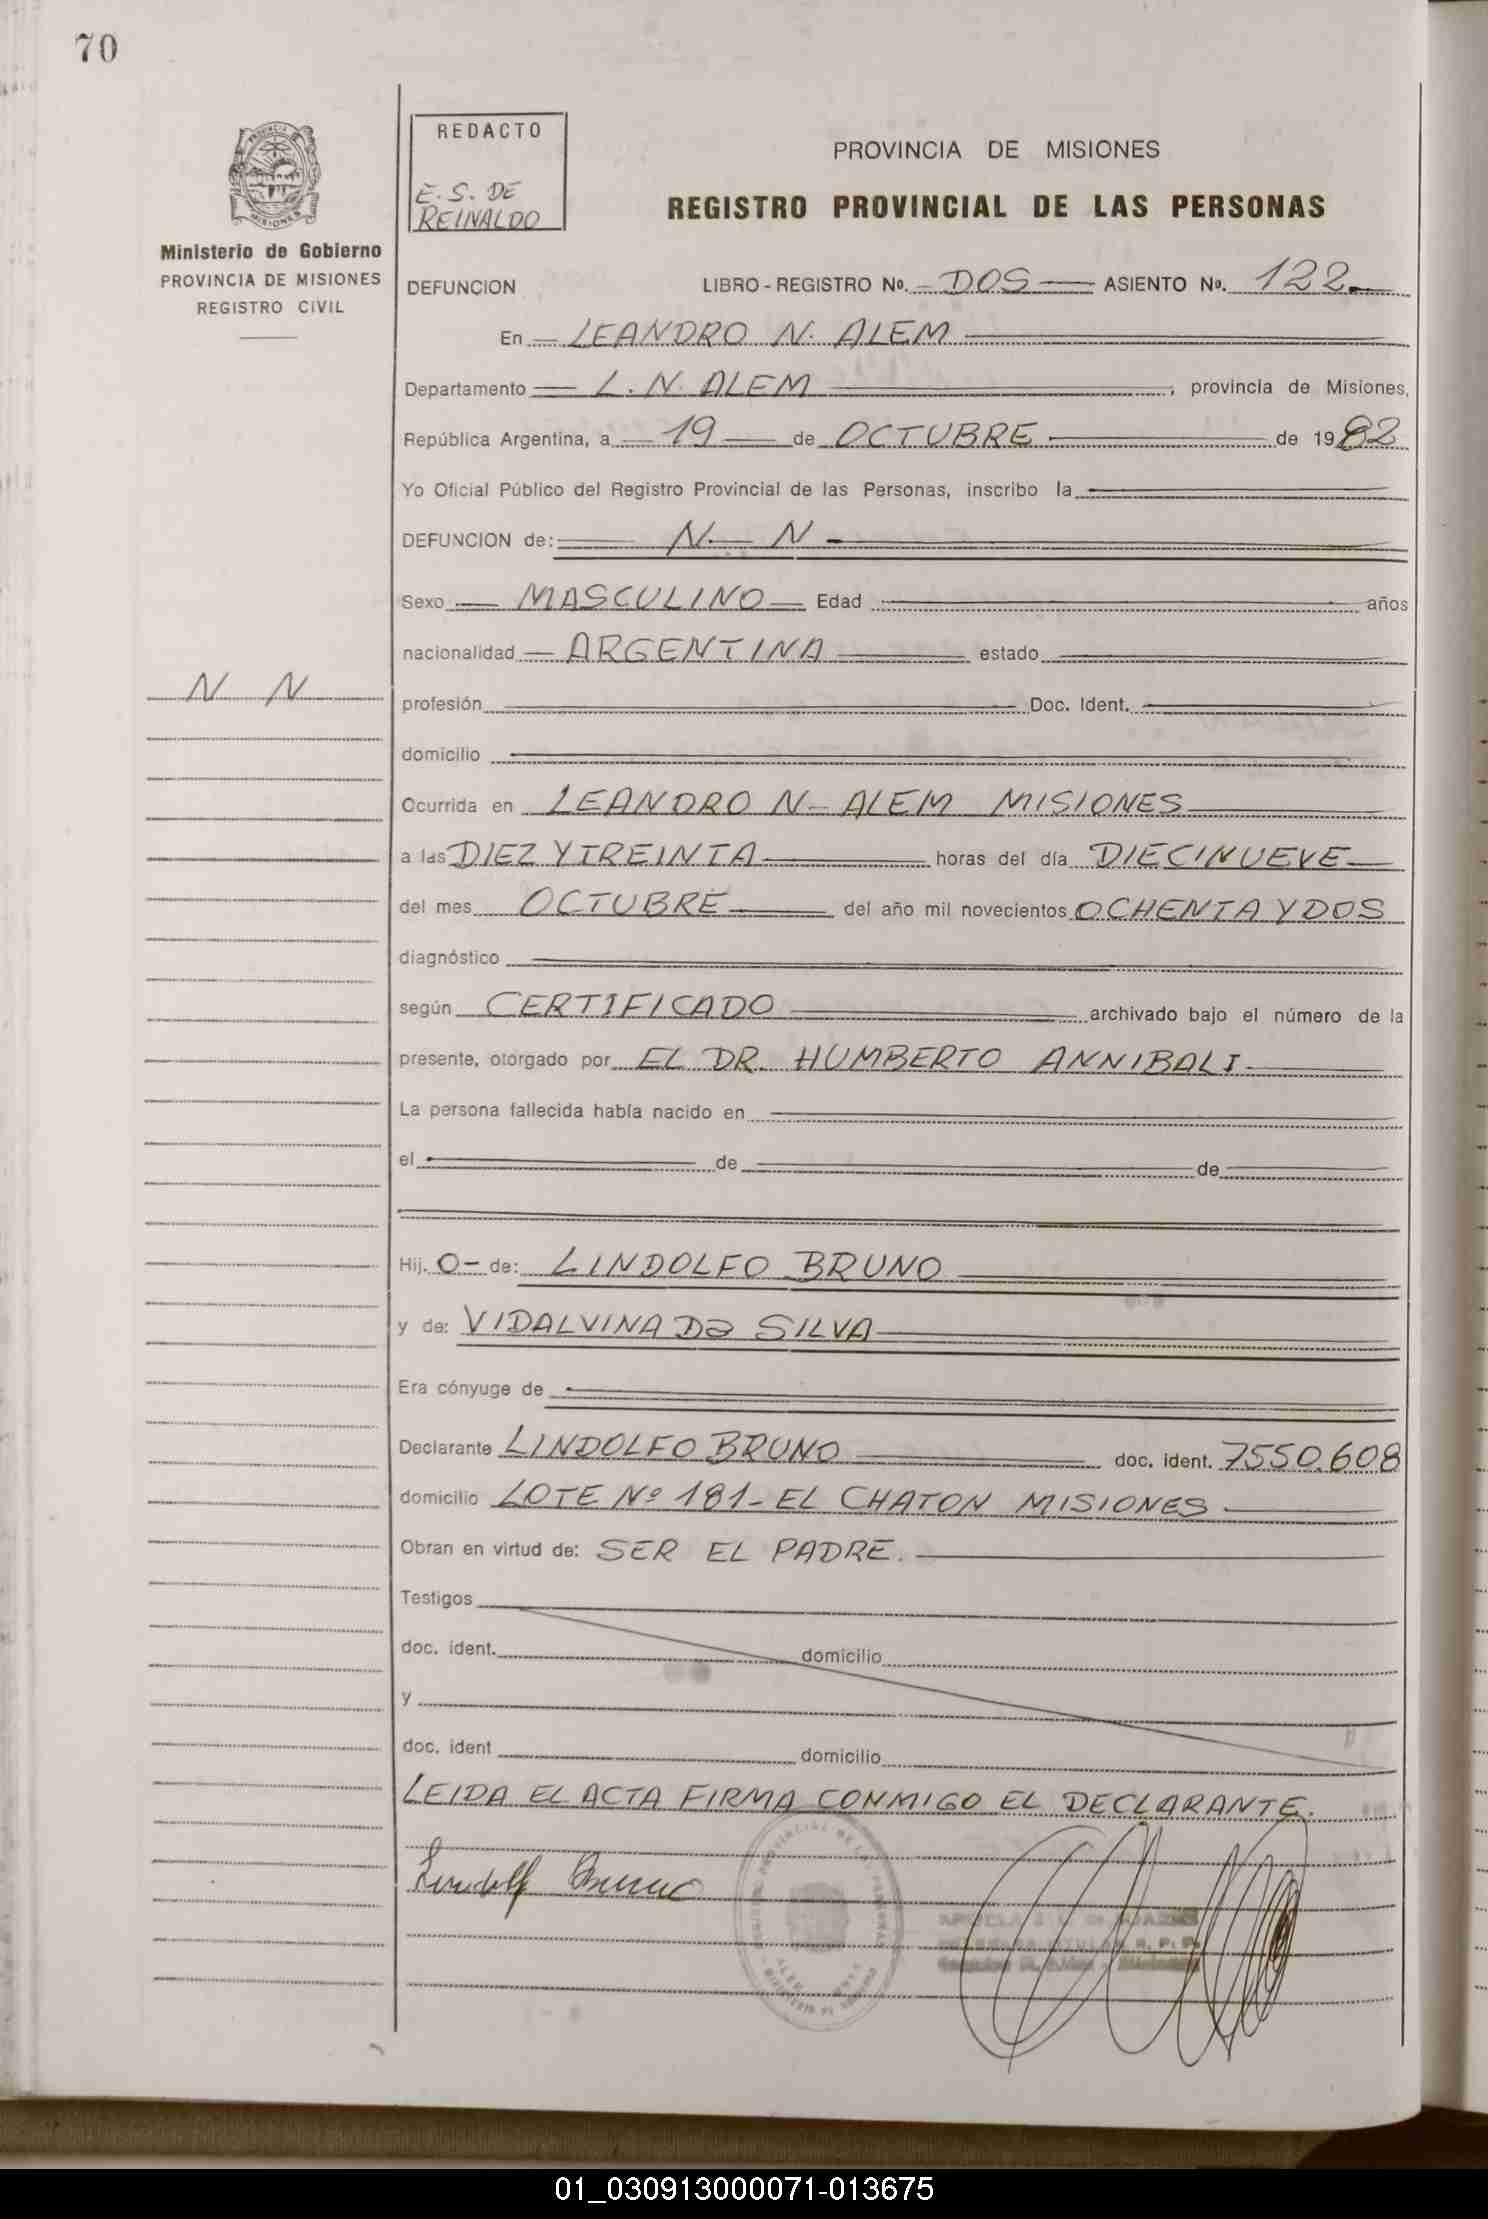 70
REDACTO
E. S. DE
REINALDO
PROVINCIA DE MISIONES
REGISTRO PROVINCIAL DE LAS PERSONAS
Ministerio de Gobierno
PROVINCIA DE MISIONES
REGISTRO CIVIL
DEFUNCION LIBRO - REGISTRO Nº. DOS ASIENTO Nº. 122
En LEANDRO N. ALEM
Departamento L. N. ALEM, provincia de Misiones,
República Argentina, a 19 de OCTUBRE de 1982
Yo Oficial Público del Registro Provincial de las Personas, inscribo la
DEFUNCION de: N N
Sexo MASCULINO Edad años
nacionalidad ARGENTINA estado
N N
profesión Doc. Ident.
domicilio
Ocurrida en LEANDRO N- ALEM MISIONES
a las DIEZ Y TREINTA horas del día DIECINUEVE
del mes OCTUBRE del año mil novecientos OCHENTA Y DOS
diagnóstico
según CERTIFICADO archivado bajo el número de la
presente, otorgado por EL DR. HUMBERTO ANNIBALI
La persona fallecida había nacido en
el de de
Hij. O- de: LINDOLFO BRUNO
y de: VIDALVINA Da SILVA
Era cónyuge de
Declarante LINDOLFO BRUNO doc. ident. 7550.608
domicilio LOTE Nº 181- EL CHATON MISIONES
Obran en virtud de: SER EL PADRE.
Testigos
doc. ident. domicilio
y
doc. ident domicilio
LEIDA EL ACTA FIRMA CONMIGO EL DECLARANTE.
Lindolf Bruno
01_030913000071-013675